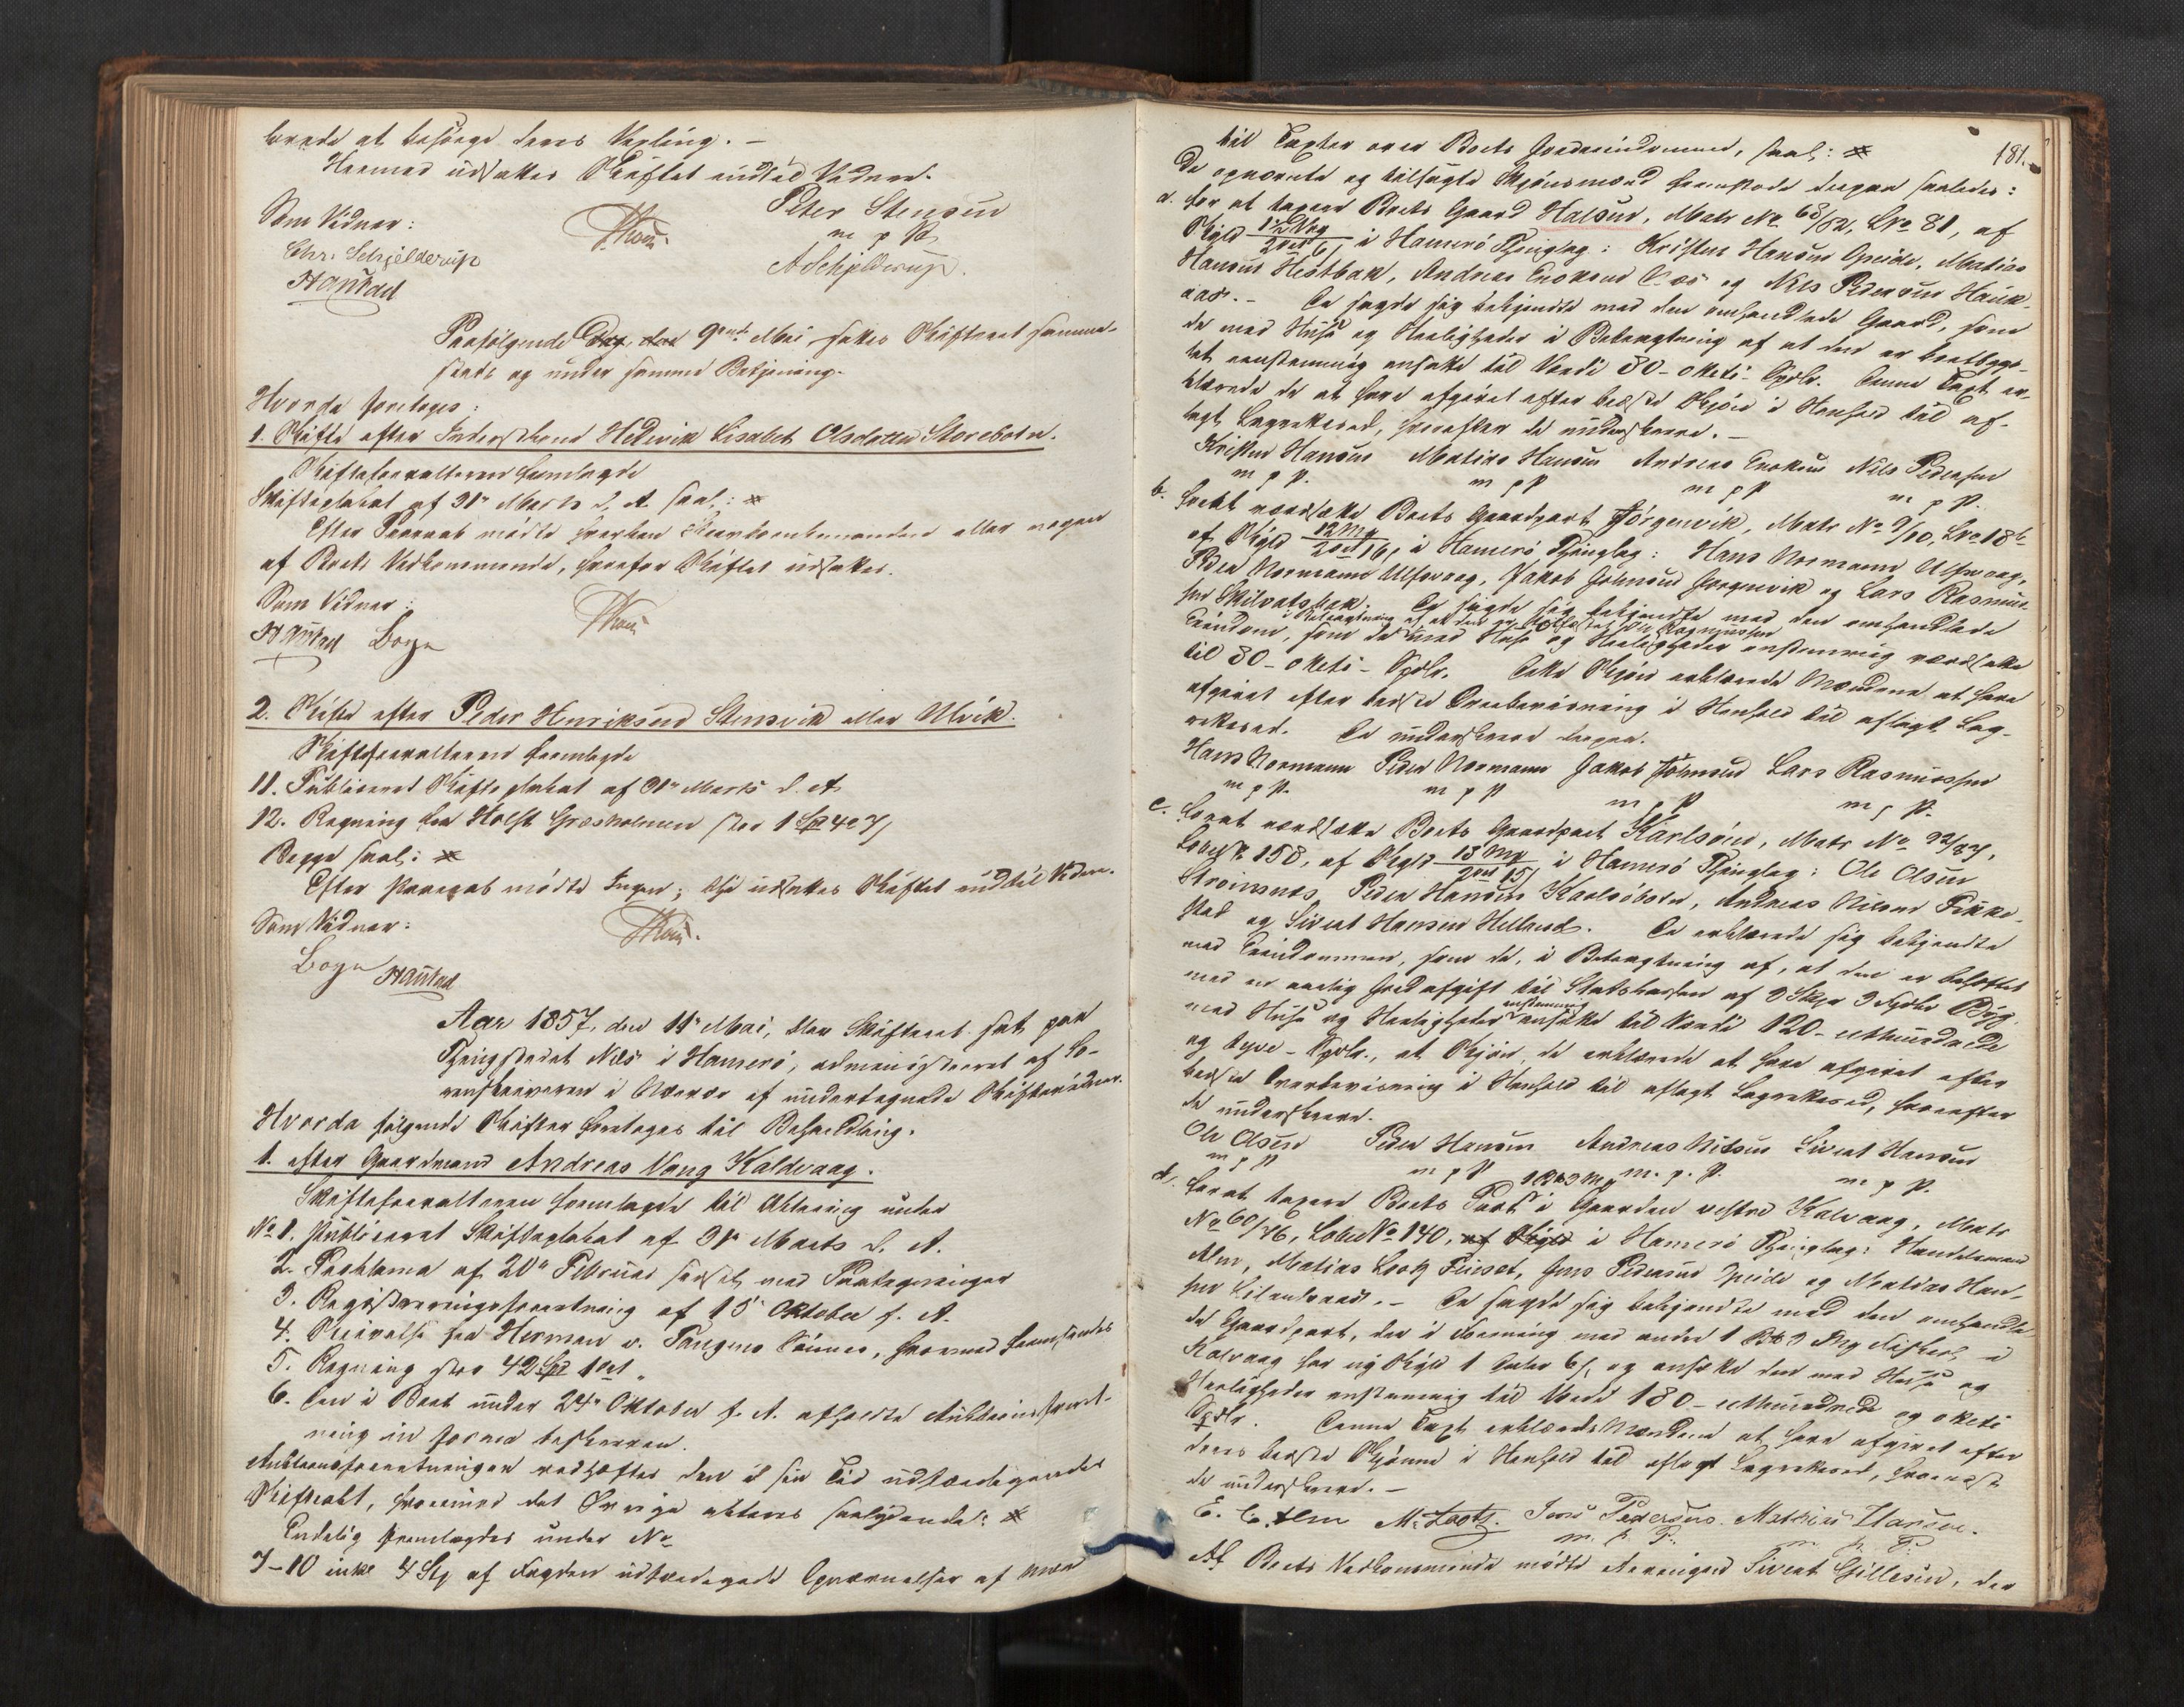 lovede at besørge deres Vexling. –
Hermed udsattes Skiftet indtil Videre.
Som Vidner:
Peter Stensen
m p P
Chr. Schjelderup
A Schjelderup.
Hanstad
Paafølgende Dag, den 9de Mai, sattes Skifteret samme-
steds og under samme Betjening.
Hvorda foretoges:
1. Skifte efter Inderstkone Hedevik Lisabet Olsdatter Storebotn.
Skifteforvalteren fremlagde
Skifteplakat af 31te Marts d. A. saal: #
Efter Paaraab mødte hverken Enkemanden eller nogen
af Boets Vedkommende, hvorfor Skiftet udsattes.
Som Vidner:
Hanstad Boye
2. Skifte efter Peder Henriksen Stensvik eller Ulvik.
Skifteforvalteren fremlagde
11. Publiceret Skifteplakat af 31te Marts d. A.
12. Regning fra Holst Græsholmen stor 1 Spd 4 ort 7 s
Begge saal: #
Efter Paaraab mødte Ingen; thi udsattes Skiftet indtil Videre.
Som Vidner:
Boye Hanstad
Aar 1857, den 11te Mai, blev Skifteret sat paa
Thingstedet Næs i Hamerø, administreret af So-
renskriveren i Nærvær af undertegnede Skiftevidner.
Hvorda følgende Skifter foretoges til Behandling.
1. efter Gaardmand Andreas Vang Kaldvaag.
Skifteforvalteren fremlagde til Aktering under
No 1. Publiceret Skifteplakat af 31te Marts d. A.
2. Proklama af 20de Februar forsynet med Paategninger
3. Registreringsforretning af 15de Oktober f. A.
4. Skrivelse fra Herman v. Tangens Sønner, hvormed fremsendes
5. Regning stor 42 Spd 1 ort
6. Den i Boet under 24de Oktober f. A. afholdte Auktionsforret-
ning in forma beskreven.
Auktionsforretningen vedhæftes den i sin Tid udfærdigende
Skifteakt, hvorimod det Øvrige akteres saalydende: #
Endelig fremlagdes under No
7–10 inkl 4 Stk af Fogden udfærdigede Opnævnelser af Mænd
181.
til Taxter over Boets Jordeiendomme, saal: #
De opnævnte og tilsagte Skjønsmænd fremstode derpaa saaledes:
a. for at taxere Boets Gaard Halsen, Matr No 68/52, LNo 81, af
Skyld i Hamerø Thinglag: Kristen Hansen Opeide, Matias
Hansen Hestbak, Andreas Enoksen Næs og Nils Pedersen Hauk-
aas. – De sagde sig bekjendte med den omhandlede Gaard, som
de med Huse og Herligheder i Betragtning af at den er bortbyg-
let eenstemmig ansatte til Værdi 80 – otteti – Spdlr. Denne Taxt er-
klærede de at have afgivet efter bedste Skjøn i Henhold til af-
lagt Lagretsed, hvorefter de underskreve. –
Kristen Hansen Matias Hansen Andreas Enoksen Nils Pedersen
m p P. m p P m p P m p P.
b. for at værdsætte Boets Gaardpart Jørgenvik, Matr No 9/10, LNo 18b
af Skyld 12 Mg i Hamerø Thinglag: Hans Normann Ulfsvaag,
Peder Normann Ulfsvaag, Jakob Johnsen Jørgenvik og Lars Rasmus-
sen Skilvatsbak. De sagde sig bekjendte med den omhandlede
Eiendom, som de med Huse og Herligheder enstemmig værdsatte
til 80 – otteti – Spdlr. Dette Skjøn erklærede Mændene at have
afgivet efter bedste Overbevisning i Henhold til aflagt Lag-
retsed. De underskreve derpaa.
Hans Normann Peder Normann Jakob Johnsen Lars Rasmussen
m p P. m p P m p P m p P.
c. for at værdsætte Boets Gaardpart Karlsøen, Matr No 22/27,
LøbeNo 158, af Skyld i Hamerø Thinglag: Ole Olsen
Strømsnes, Peder Hansen Karlsøbotn, Andreas Nilsen Fikke-
stad og Sivert Hansen Helland. De erklærede sig bekjendte
med Eiendommen, som de, i Betragtning af, at den er beheftet
med en aarlig Jordafgift til Statskassen af Byg
med Huse og Herligheder enstemmig ansatte til Værdi 120 – ethundrede
og tyve – Spdlr., et Skjøn, de erklærede at have afgivet efter
bedste Overbevisning i Henhold til aflagt Lagretsed, hvorefter
de underskreve.
Ole Olsen Peder Hansen Andreas Nilsen Sivert Hansen
m p P m p P m. p. P. m p P.
d. for at taxere Boets Part i Gaarden vestre Kalvaag, Matr
No 60/46, LøbeNo 140, af Skyld i Hamerø Thinglag: Handelsmand
Alm, Matias Lootz Finset, Jens Pedersen Opeide og Mathias Han-
sen Lilandvaas. – De sagde sig bekjendte med den omhandle-
de Gaardpart, der i Forening med andre i
Kalvaag har ny Skyld 1 Daler 6 s, og ansatte den med Huse og
Herligheder enstemmig til Værdi 180 – ethundrede og otteti
Spdlr. Denne Taxt erklærede Mændene at have afgivet efter
deres bedste Skjønne i Henhold til aflagt Lagretsed, hvornæst
de underskreve. –
E. C. Alm M. Lootz. Jens Pedersen. Mathias Hansen.
m. p. P. m. p. P.
Af Boets Vedkommende mødte Arvingen Sivert Gillesen, der